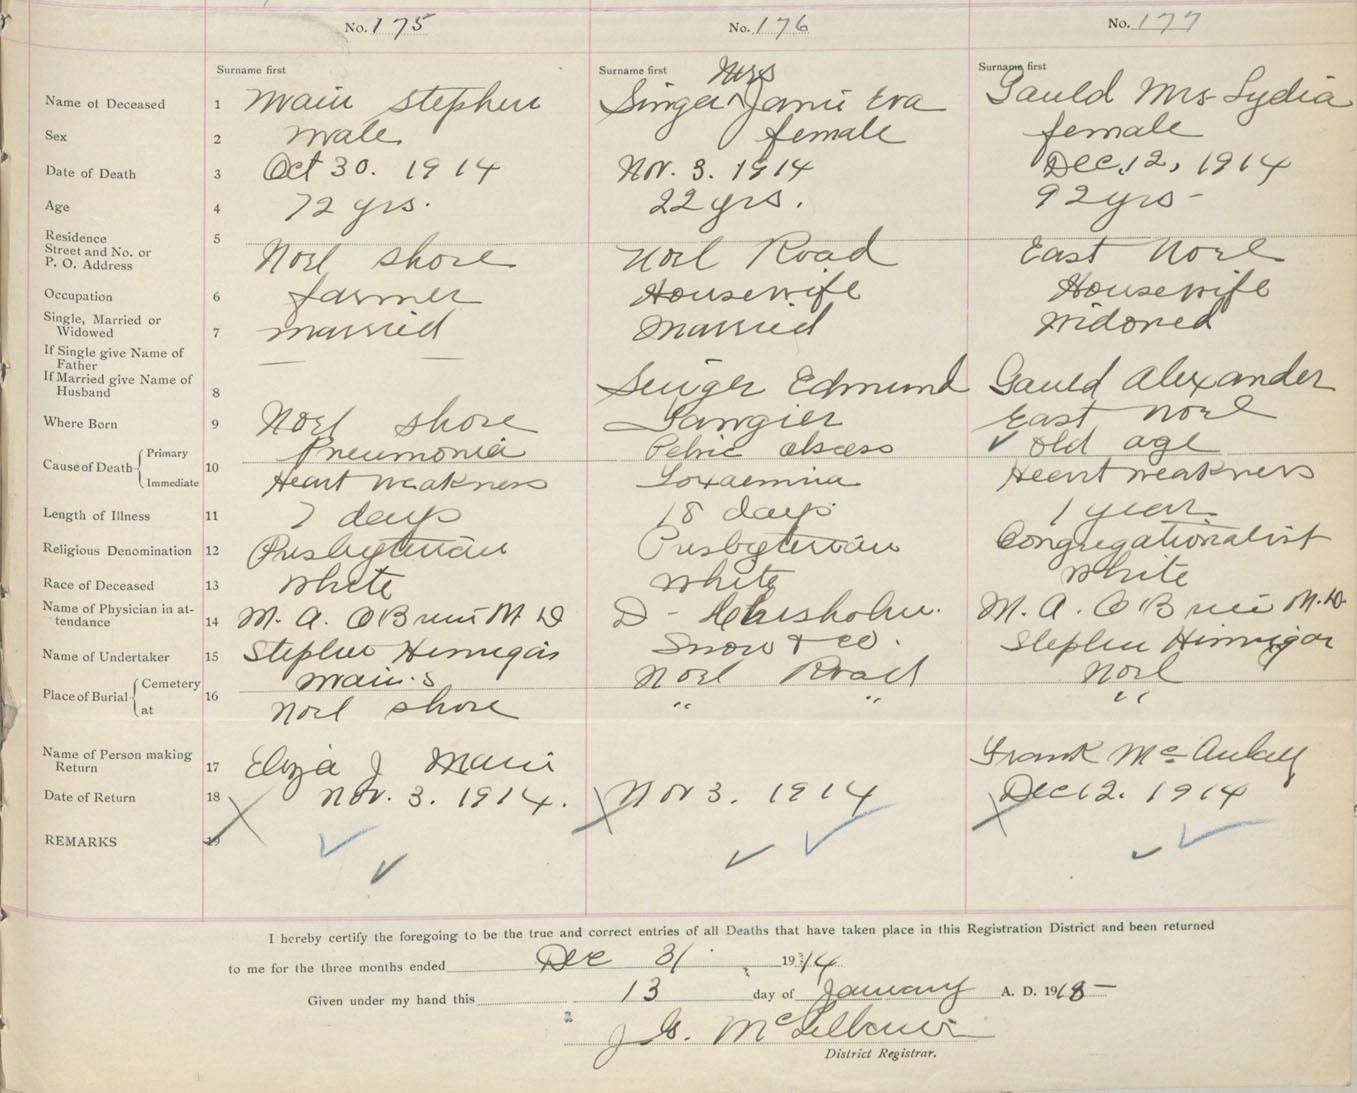 No. 175 No. 176 No. 177
Surname first Surname first Surname first
Name of Deceased 1 Main Stephen Singer Mrs Janie Eva Gauld Mrs Lydia
Sex 2 male female female
Date of Death 3 Oct 30. 1914 Nov. 3. 1914 Dec, 12, 1914
Age 4 72 yrs. 22 yrs. 92 yrs -
Residence Street and No. or P. O. Address 5 Noel shore Noel Road East Noel
Occupation 6 farmer Housewife Housewife
Single, Married or Widowed 7 married Married Widowed
If Single give Name of Father — —
If Married give Name of Husband 8 Singer Edmund Gauld Alexander
Where Born 9 Noel shore Tangier East Noel
Cause of Death Primary 10 Pneumonia Pelvic abscess Old age
Immediate Heart weakness Toxaemia Heart weakness
Length of Illness 11 7 days 18 days 1 year
Religious Denomination 12 Presbyterian Presbyterian Congregationalist
Race of Deceased 13 White White White
Name of Physician in attendance 14 M. A. O'Brien M D D - Chisholm. M. A. O'Brien M. D.
Name of Undertaker 15 Stephen Hennigar Snow & co. Stephen Hennigar
Place of Burial Cemetery 16 Main's Noel Road Noel
at Noel shore " " "
Name of Person making Return 17 Eliza J Main Frank McAulay
Date of Return 18 Nov. 3. 1914. Nov 3. 1914 Dec 12. 1914
REMARKS 19
I hereby certify the foregoing to be the true and correct entries of all Deaths that have taken place in this Registration District and been returned
to me for the three months ended Dec 31 1914
Given under my hand this 13 day of January A. D. 19
J. G.
District Registrar.